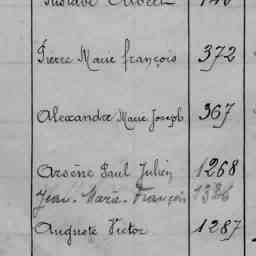 Gustave Albert 140
Pierre Marie françois 372
Alexandre Marie Joseph 367
Arsène Paul Julien 1268
Jean-Marie-François 1326
Auguste Victor 1287